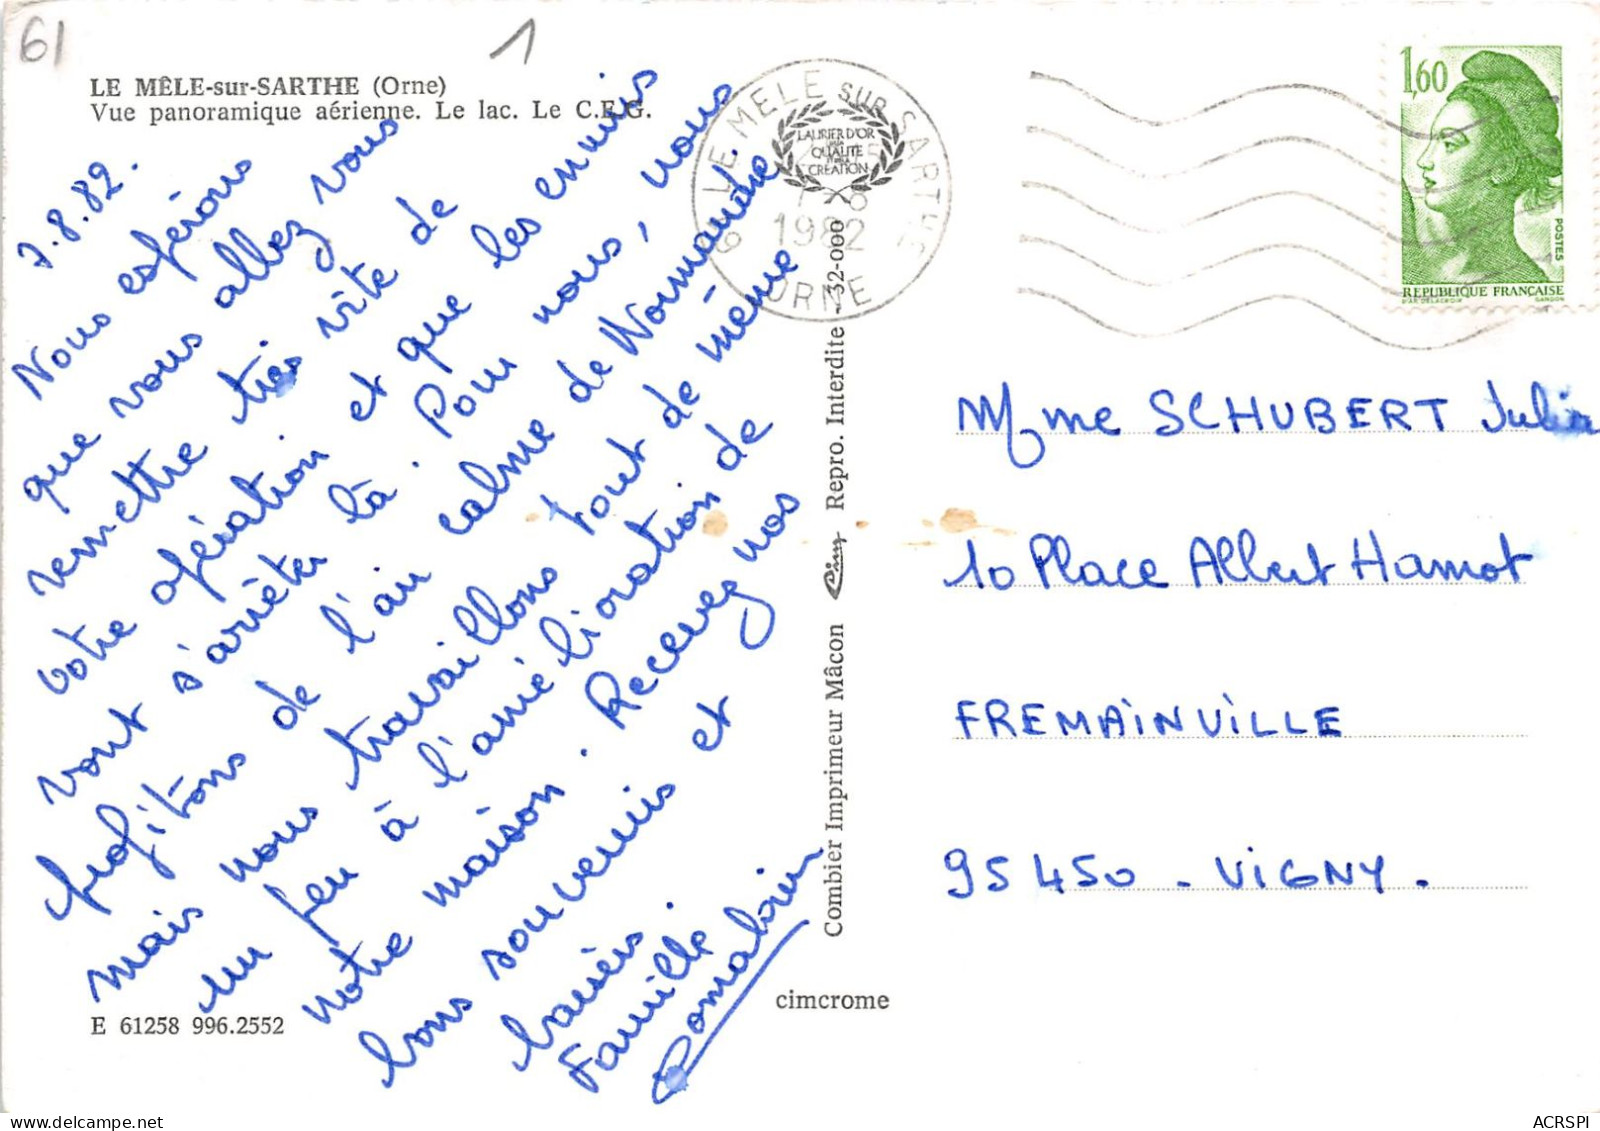 61
1
LE MÊLE-sur-SARTHE (Orne)
Vue panoramique aérienne. Le lac. Le C.E.G.
7.8.82.
Nous espérons
que vous allez vous
remettre très vite de
votre opération et que les ennuis
vont s'arrêter là. Pour nous, nous
profitons de l'air calme de Normandie
mais nous travaillons tout de même
un peu à l'amélioration de
notre maison. Recevez nos
bons souvenirs et
baisers.
Famille
E 61258 996.2552
cimcrome
Combier Imprimeur Mâcon Cim Repro. Interdite 32-000
LAURIER D'OR
QUALITÉ
CRÉATION
61 LE MELE SUR SARTHE
1982
ORNE
1,60
POSTES
REPUBLIQUE FRANÇAISE
D'AP. DELACROIX GANDON
Mme SCHUBERT Julia
10 Place Albert Hamot
FREMAINVILLE
95450 - VIGNY.
ACRSPI